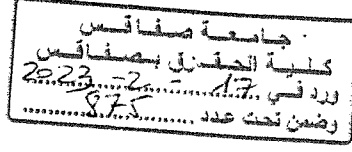 جامعة صفاقس
كلية الحقوق بصفاقس
ورد في 17 -2- 2023
وضمن تحت عدد 875